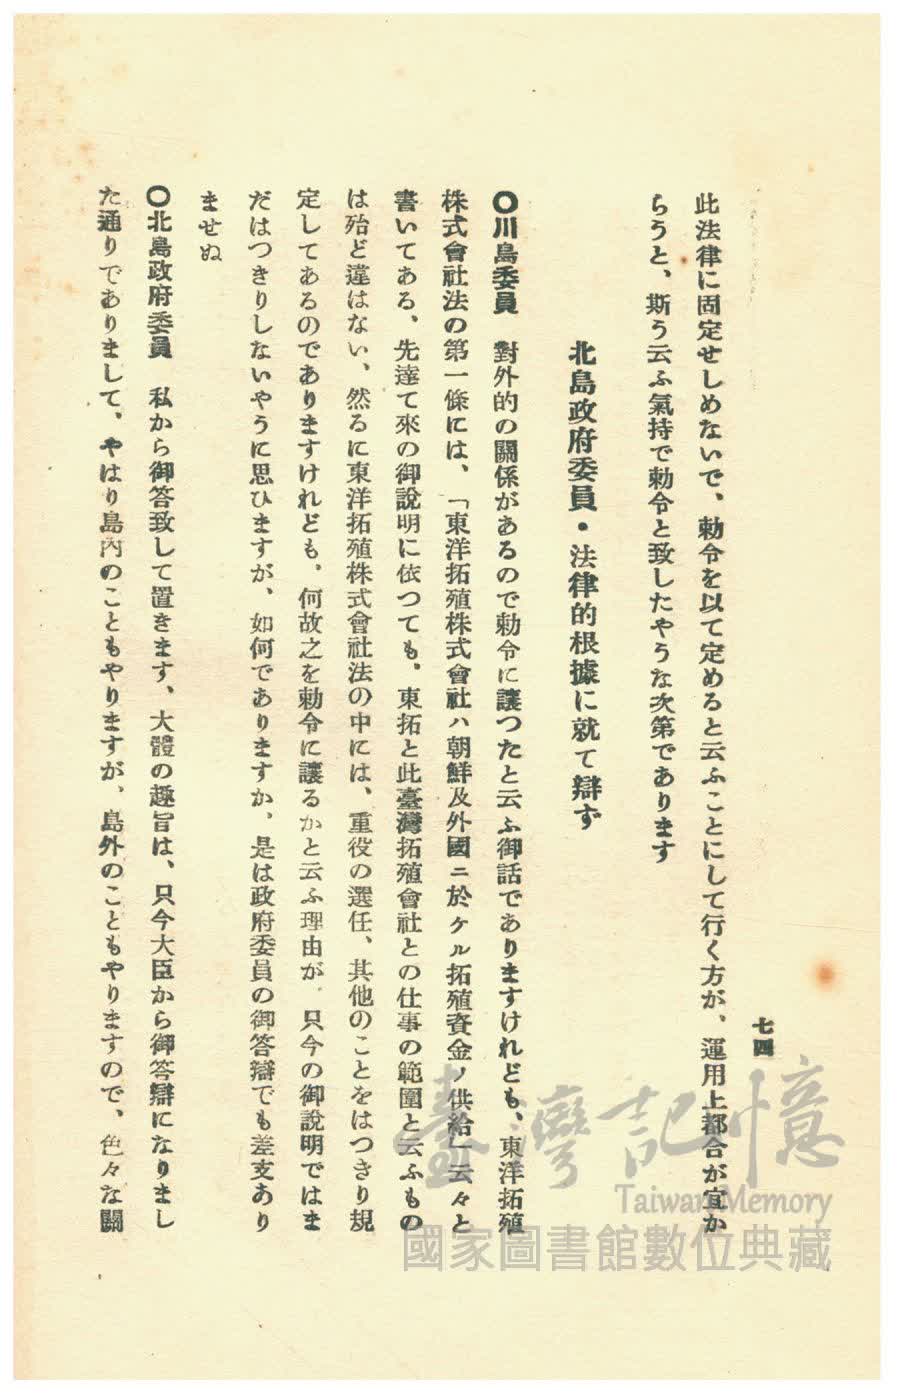 七四
此法律に固定せしめないで、勅令を以て定めると云ふことにして行く方が、運用上都合が宜か
らうと、斯う云ふ氣持で勅令と致したやうな次第であります
北島政府委員・法律的根據に就て辯ず
〇川島委員　對外的の關係があるので勅令に讓つたと云ふ御話でありますけれども、東洋拓殖
株式會社法の第一條には、「東洋拓殖株式會社ハ朝鮮及外國ニ於ケル拓殖資金ノ供給」云々と
書いてある、先達て來の御說明に依つても、東拓と此臺灣拓殖會社との仕事の範圍と云ふもの
は殆ど違はない、然るに東洋拓殖株式會社法の中には、重役の選任、其他のことをはつきり規
定してあるのでありますけれども、何故之を勅令に讓るかと云ふ理由が、只今の御說明ではま
だはつきりしないやうに思ひますが、如何でありますか、是は政府委員の御答辯でも差支あり
ませぬ
〇北島政府委員　私から御答致して置きます、大體の趣旨は、只今大臣から御答辯になりまし
た通りでありまして、やはり島內のこともやりますが、島外のこともやりますので、色々な關
臺灣記憶
Taiwan Memory
國家圖書館數位典藏